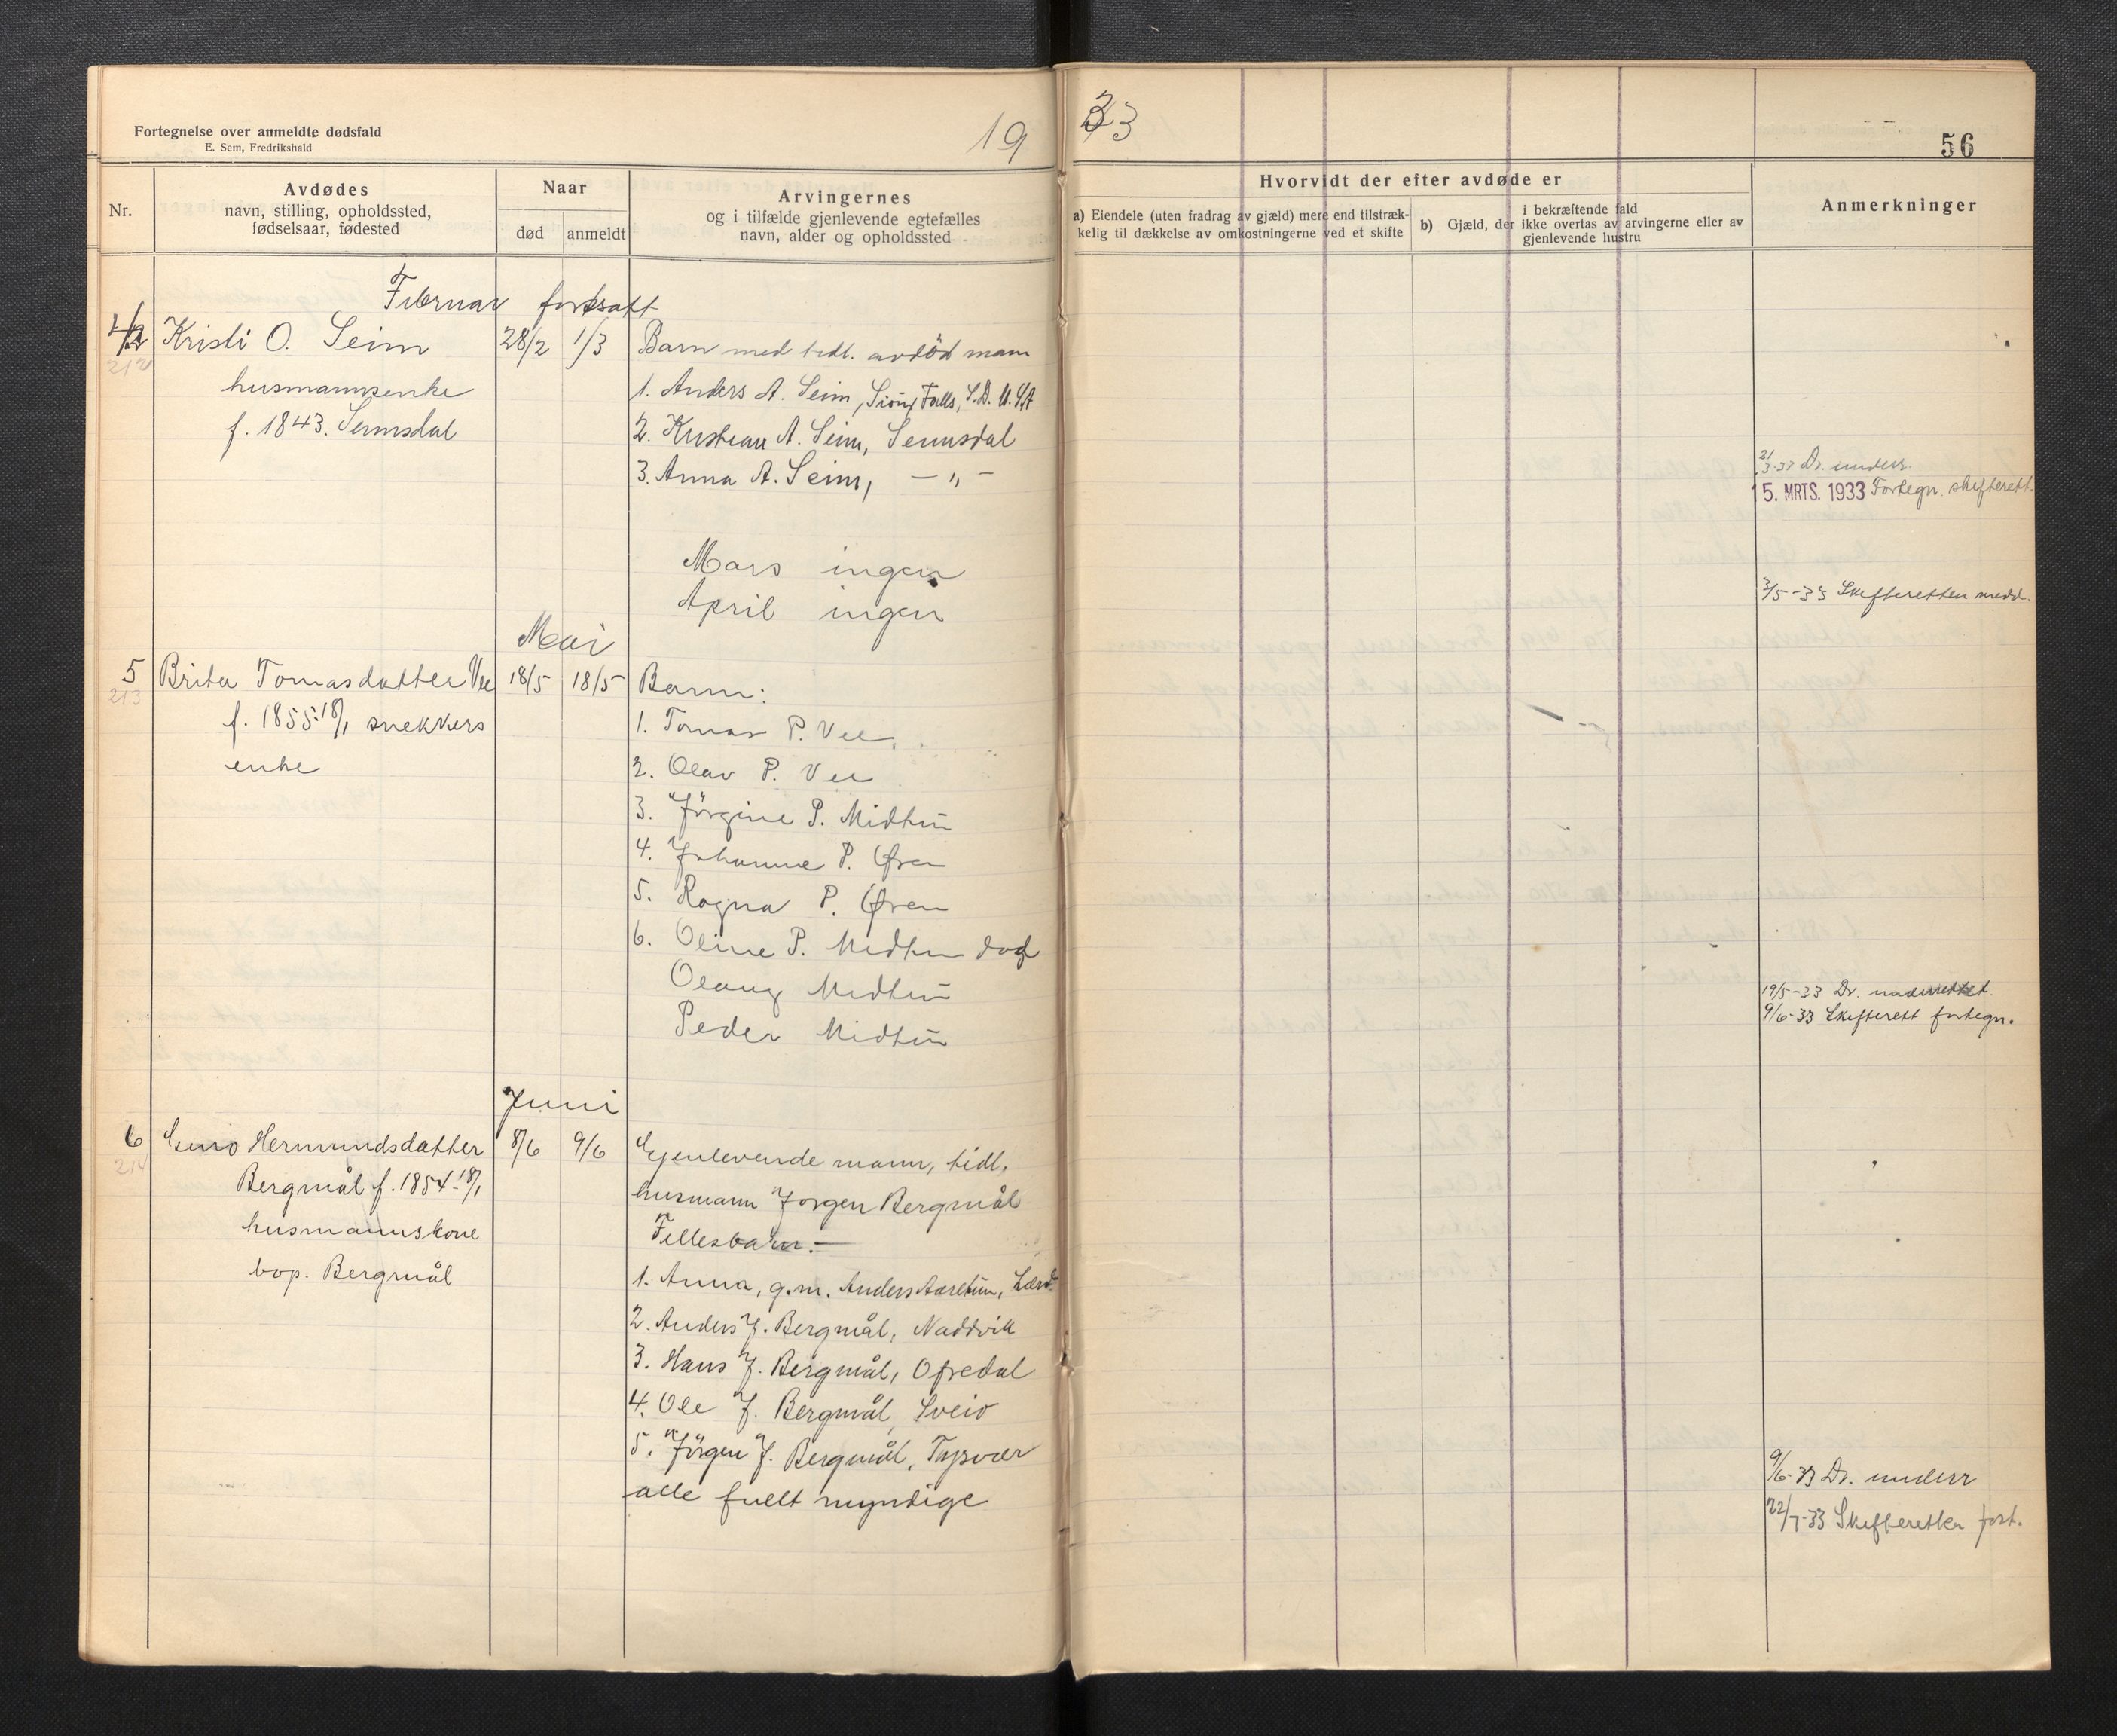 Fortegnelse over anmeldte dødsfald
E. Sem, Fredrikshald
19
33
56
Nr.
Avdødes
navn, stilling, opholdssted,
fødselsaar, fødested
Naar
død
anmeldt
Arvingernes
og i tilfælde gjenlevende egtefælles
navn, alder og opholdssted
Hvorvidt der efter avdøde er
a) Eiendele (uten fradrag av gjæld) mere end tilstræk-
kelig til dækkelse av omkostningerne ved et skifte
b) Gjæld, der
i bekræftende fald
ikke overtas av arvingerne eller av
gjenlevende hustru
Anmerkninger
Februar fortsatt
4
212
Kristi O. Seim
husmannsenke
f. 1843. Seimsdal
28/2
1/3
Barn med tidl. avdød mann
1. Anders A. Seim, Sioux Falls, S.D. U.S.A
2. Kristian A. Seim, Seimsdal
3. Anna A. Seim, – „ –
5. MRTS. 1933 Fortegn. skifterett.
Mars ingen
April ingen
3/5-33 Skifteretten medd.
Mai
5
213
Brita Tomasdatter Vee
f. 1855 18/1 snekkers
enke
18/5
18/5
Barn:
1. Tomas P. Vee
2. Olav P. Vee
3. Jörgine P. Midtun
4. Johanne P. Øren
5. Ragna P. Øren
6. Oline P. Midtun død
Olaug Midtun
Peder Midtun
19/5-33 Dr. underrettet
9/6-33 Skifterett fortegn.
Juni
6
214
Hermundsdatter
Bergmål f. 1854-18/1
husmannskone
bop. Bergmål
8/6
9/6
Gjenlevende mann, tidl.
husmann Jørgen Bergmål
Fellesbarn:-
1. Anna, g.m. Anders Aaretun, Lærd.
2. Anders J. Bergmål, Naddvik
3. Hans J. Bergmål, Ofredal
4. Ole J. Bergmål, Sveio
5. Jörgen J. Bergmål, Tysvær
alle fullt myndige
9/6-33 Dr. underr
22/7-33 Skifteretten fort.